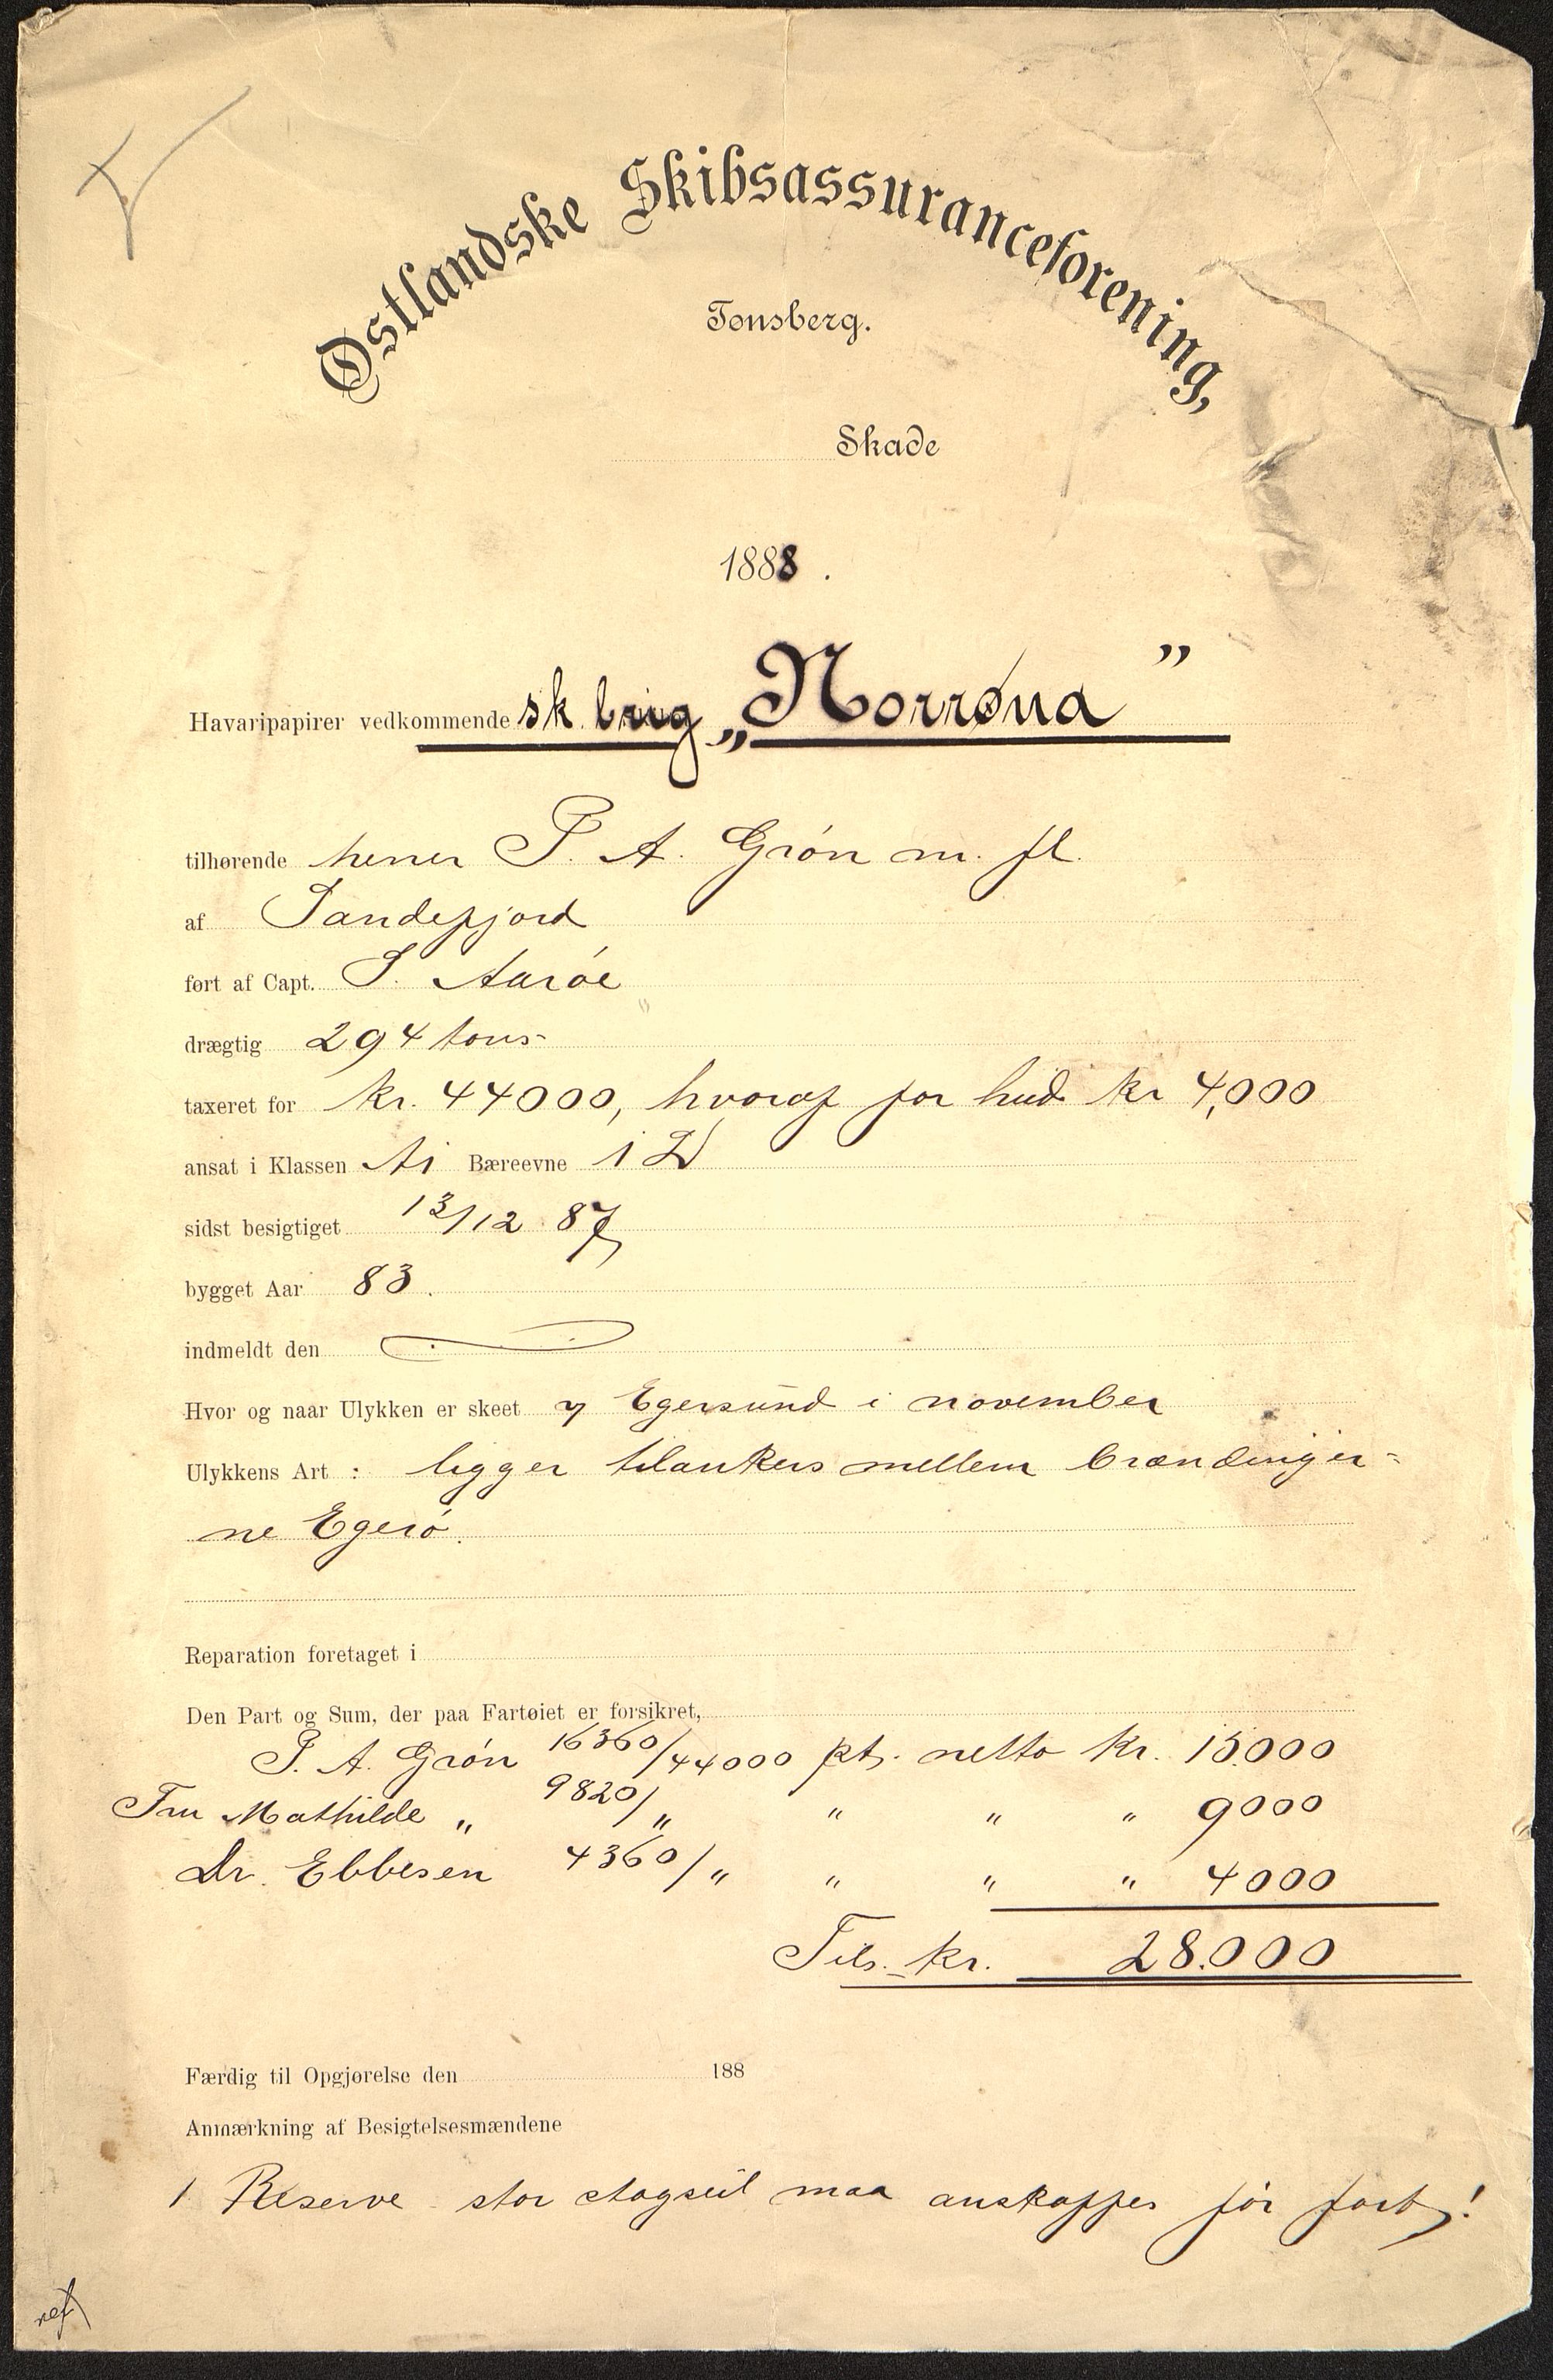 Østlandske Skibsassuranceforening,
Tønsberg.
Skade
1888.
Havaripapirer vedkommende sk. brig „Norrøna”
tilhørende herrer P. A. Grøn m. fl.
af Sandefjord
ført af Capt. S. Aarøe
drægtig 294 tons
taxeret for kr. 44000, hvoraf for hud kr 4,000
ansat i Klassen A1 Bæreevne 1 D
sidst besigtiget 13/12 87
bygget Aar 83.
indmeldt den
Hvor og naar Ulykken er skeet v Egersund i november
Ulykkens Art : ligger tilankers mellem brændinger-
ne Egerø.
Reparation foretaget i
Den Part og Sum, der paa Fartøiet er forsikret,
P. A. Grøn 16360/44000 pt. netto kr. 15.000
Fru Mathilde „ 9820/„ „ „ „ 9000
Dr. Ebbesen 4360/„ „ „ „ 4000
Tils. kr. 28.000
Færdig til Opgjørelse den 188
Anmærkning af Besigtelsesmændene
1 Reserve stor stagseil maa anskaffes før fart!